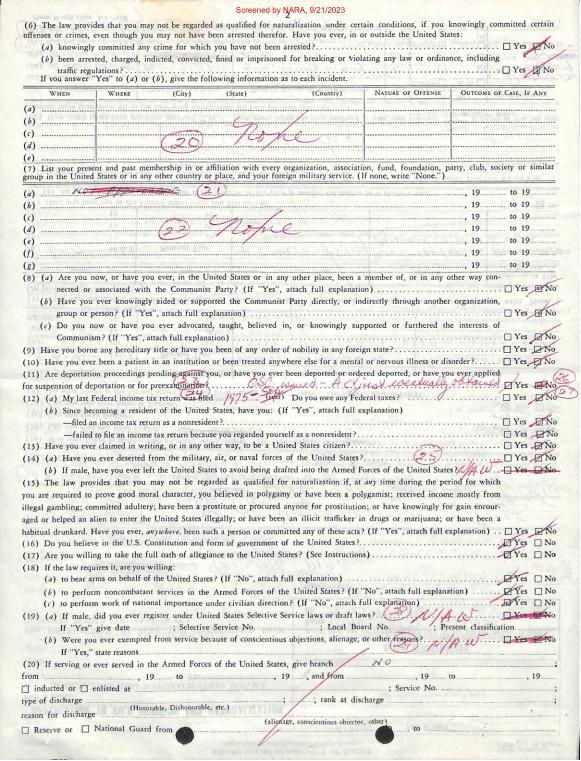 Screened by NARA, 9/21/2023
2
(6) The law provides that you may not be regarded as qualified for naturalization under certain conditions, if you knowingly committed certain
offenses or crimes, even though you may not have been arrested therefor. Have you ever, in or outside the United States:
(a) knowingly committed any crime for which you have not been arrested? ☐ Yes ☒ No
(b) been arrested, charged, indicted, convicted, fined or imprisoned for breaking or violating any law or ordinance, including
traffic regulations? ☐ Yes ☒ No
If you answer "Yes" to (a) or (b), give the following information as to each incident.
WHEN WHERE (City) (State) (Country) NATURE OF OFFENSE OUTCOME OF CASE, IF ANY
(a)
(b)
(c)
(d) 20 None
(e)
(7) List your present and past membership in or affiliation with every organization, association, fund, foundation, party, club, society or similar
group in the United States or in any other country or place, and your foreign military service. (If none, write "None.")
(a) 21 , 19 to 19
(b) , 19 to 19
(c) , 19 to 19
(d) 22 None , 19 to 19
(e) , 19 to 19
(f) , 19 to 19
(g) , 19 to 19
(8) (a) Are you now, or have you ever, in the United States or in any other place, been a member of, or in any other way con-
nected or associated with the Communist Party? (If "Yes", attach full explanation) ☐ Yes ☒ No
(b) Have you ever knowingly aided or supported the Communist Party directly, or indirectly through another organization,
group or person? (If "Yes", attach full explanation) ☐ Yes ☒ No
(c) Do you now or have you ever advocated, taught, believed in, or knowingly supported or furthered the interests of
Communism? (If "Yes", attach full explanation) ☐ Yes ☒ No
(9) Have you borne any hereditary title or have you been of any order of nobility in any foreign state? ☐ Yes ☒ No
(10) Have you ever been a patient in an institution or been treated anywhere else for a mental or nervous illness or disorder? ☐ Yes ☒ No
(11) Are deportation proceedings pending against you, or have you ever been deported or ordered deported, or have you ever applied
for suspension of deportation or for preexamination? OSC issued - Adjust eventually obtained ☒ Yes No
(12) (a) My last Federal income tax return was filed 24 1975 Do you owe any Federal taxes? ☐ Yes ☒ No
(b) Since becoming a resident of the United States, have you: (If "Yes", attach full explanation)
—filed an income tax return as a nonresident? ☐ Yes ☒ No
—failed to file an income tax return because you regarded yourself as a nonresident? ☐ Yes ☒ No
(13) Have you ever claimed in writing, or in any other way, to be a United States citizen? ☐ Yes ☒ No
(14) (a) Have you ever deserted from the military, air, or naval forces of the United States? 25 ☐ Yes ☒ No
(b) If male, have you ever left the United States to avoid being drafted into the Armed Forces of the United States? N/A W ☐ Yes ☒ No
(15) The law provides that you may not be regarded as qualified for naturalization if, at any time during the period for which
you are required to prove good moral character, you believed in polygamy or have been a polygamist; received income mostly from
illegal gambling; committed adultery; have been a prostitute or procured anyone for prostitution; or have knowingly for gain encour-
aged or helped an alien to enter the United States illegally; or have been an illicit trafficker in drugs or marijuana; or have been a
habitual drunkard. Have you ever, anywhere, been such a person or committed any of these acts? (If "Yes", attach full explanation) ☐ Yes ☒ No
(16) Do you believe in the U.S. Constitution and form of government of the United States? ☒ Yes ☐ No
(17) Are you willing to take the full oath of allegiance to the United States? (See Instructions) ☒ Yes ☐ No
(18) If the law requires it, are you willing:
(a) to bear arms on behalf of the United States? (If "No", attach full explanation) ☒ Yes ☐ No
(b) to perform noncombatant services in the Armed Forces of the United States? (If "No", attach full explanation) ☒ Yes ☐ No
(c) to perform work of national importance under civilian direction? (If "No", attach full explanation) ☒ Yes ☐ No
(19) (a) If male, did you ever register under United States Selective Service laws or draft laws? 28 N/A W Yes No
If "Yes" give date ; Selective Service No. ; Local Board No. ; Present classification
(b) Were you ever exempted from service because of conscientious objections, alienage, or other reasons? 29 N/A W Yes No
If "Yes," state reasons
(20) If serving or ever served in the Armed Forces of the United States, give branch NO
from , 19 to , 19 , and from , 19 to , 19
☐ inducted or ☐ enlisted at ; Service No. ;
type of discharge ; rank at discharge ;
(Honorable, Dishonorable, etc.)
reason for discharge
(alienage, conscientious objector, other)
☐ Reserve or ☐ National Guard from to